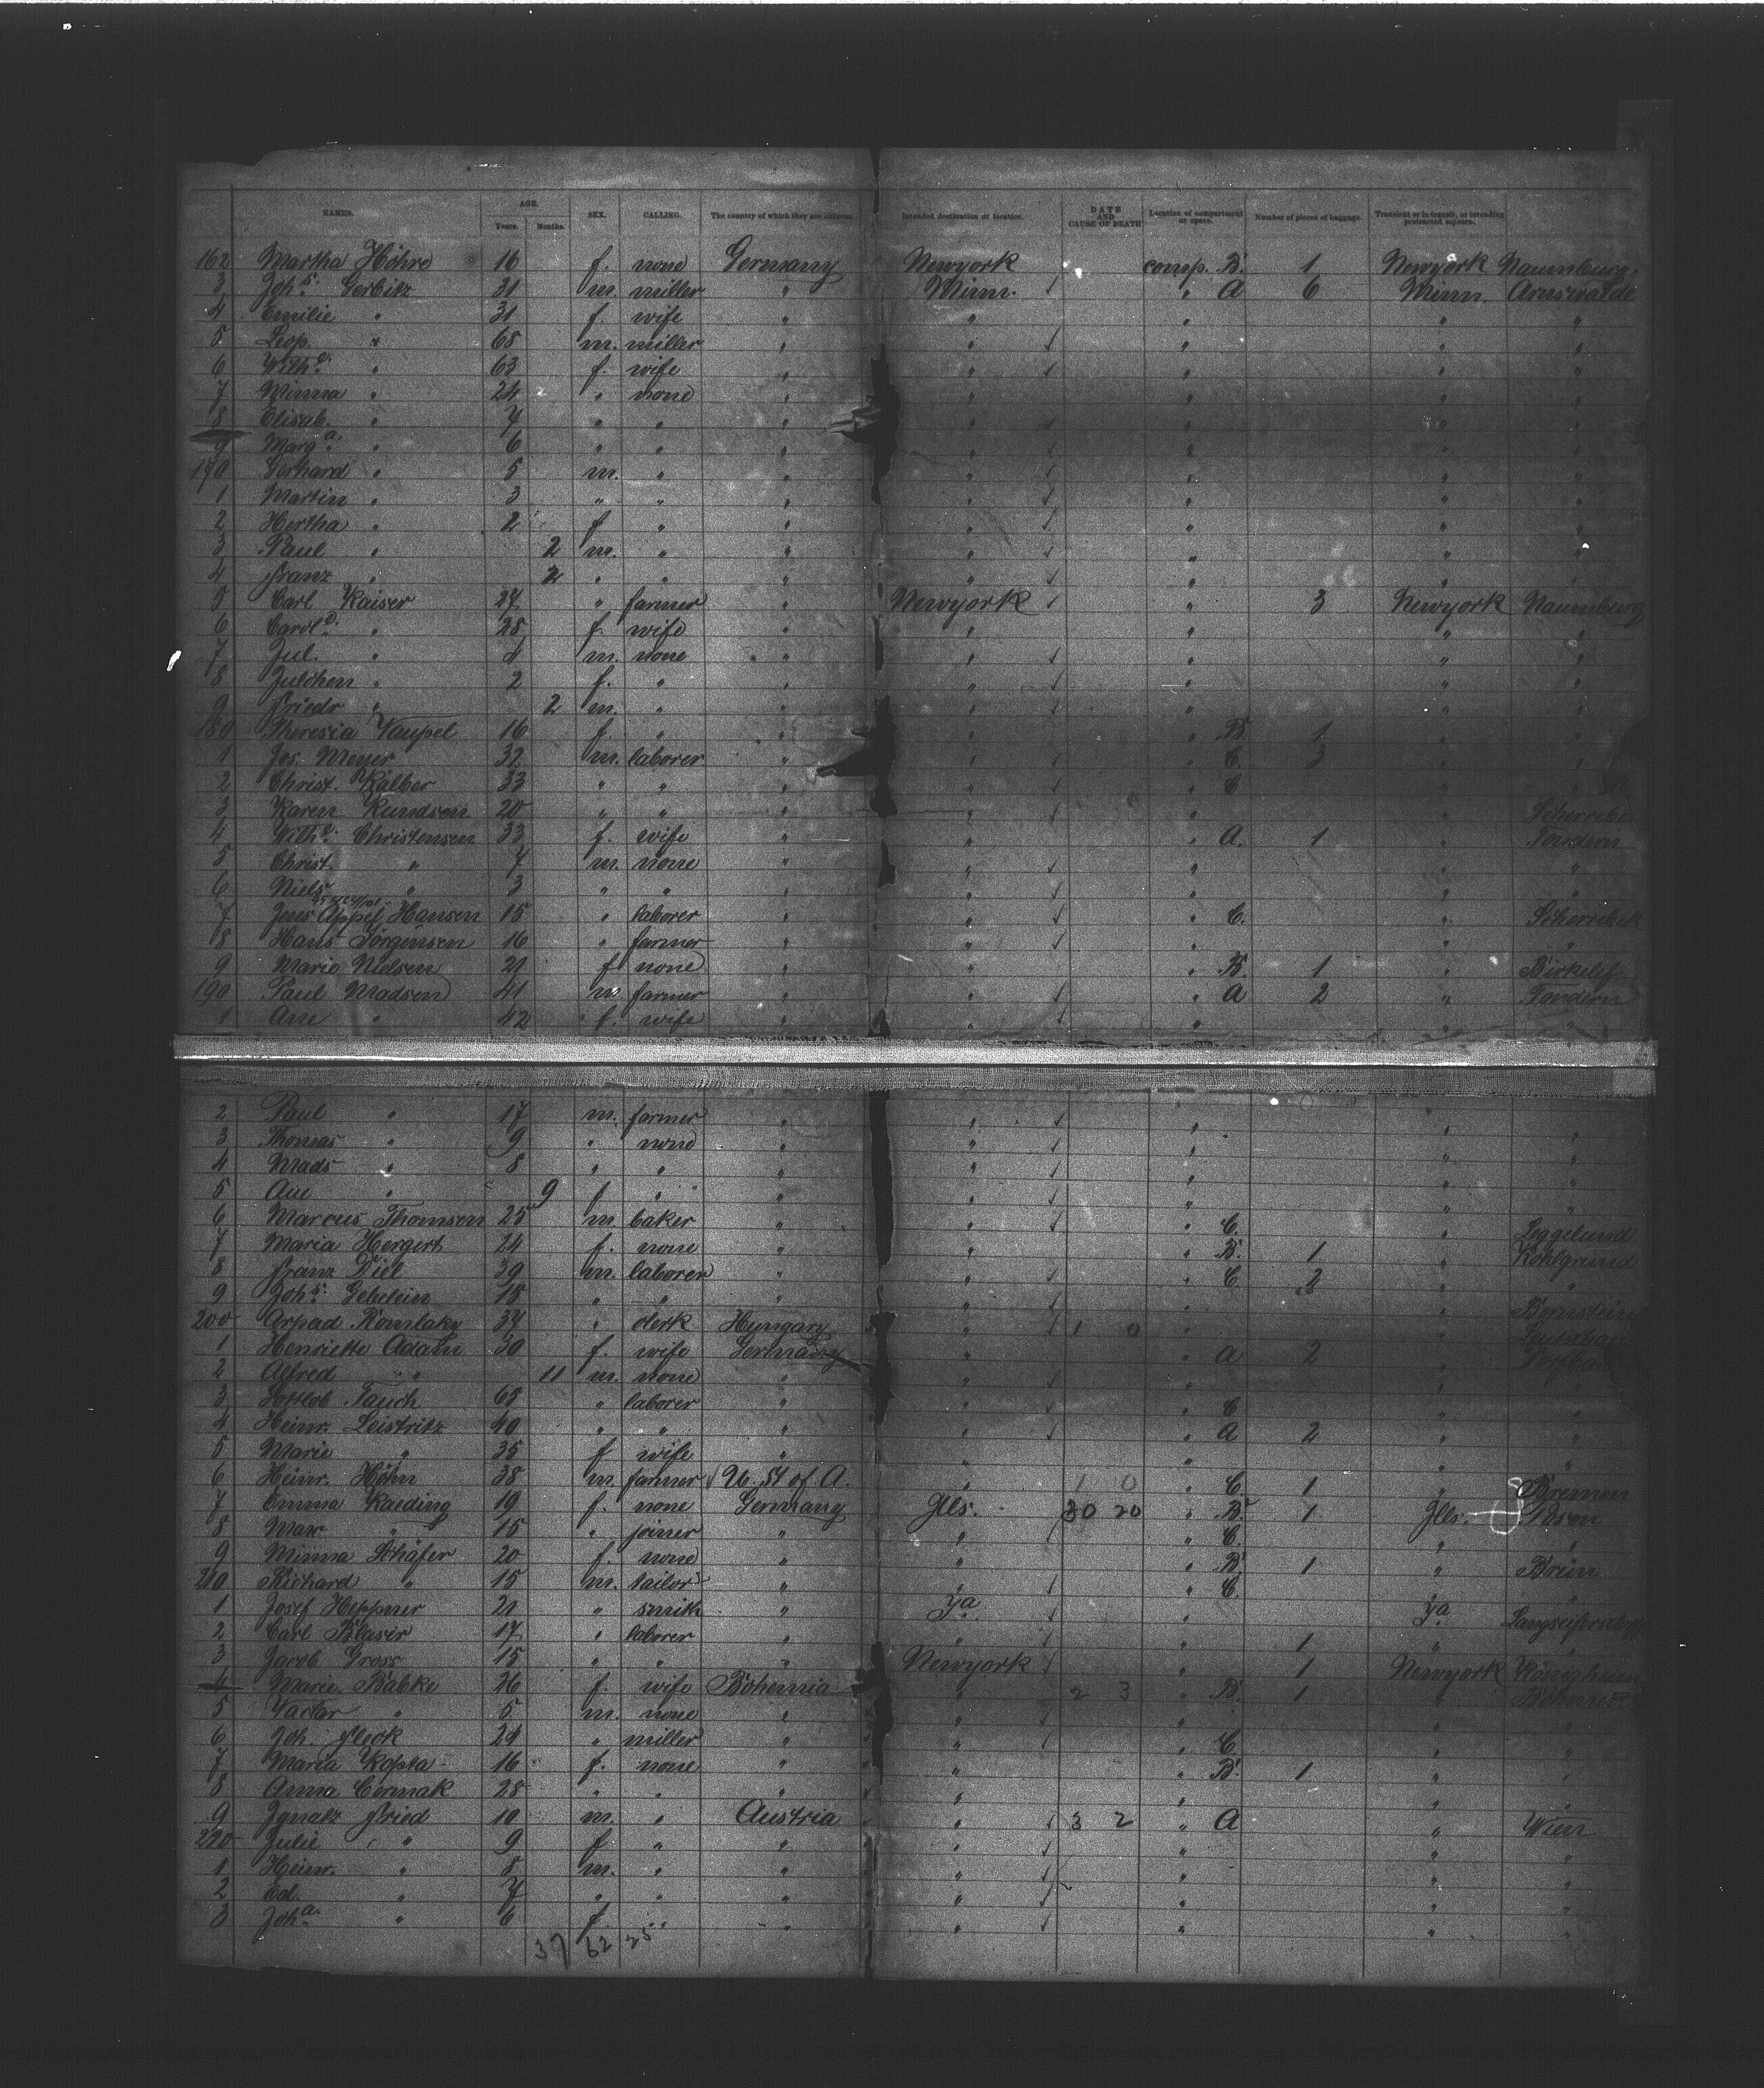 NAMES. AGE. Years. Months. SEX. CALLING. The country of which they are citizens. Intended destination or location. DATE AND CAUSE OF DEATH Location of compartment or space. Number of pieces of baggage. Transient or in transit, or intending protracted sojourn.
162 Martha Höhre 16 f. none Germany Newyork comp. B. 1 Newyork Naumburg.
3 Johs. Gerbitz 31 m. miller " Minn. " A 6 Minn. Arnswalde
4 Emilie " 31 f. wife " " " " "
5 Leop. " 68 m. miller " " " " "
6 Withe. " 63 f. wife " " " " "
7 Minna " 24 " none " " " " "
8 Elisab. " 7 " " " " " " "
9 Marga. " 6 " " " " " " "
170 Gerhard " 5 m. " " " " " "
1 Martin " 3 " " " " " " "
2 Hertha " 2 f " " " " " "
3 Paul " 2 m. " " " " " "
4 Franz " 2 " " " " " " "
5 Carl Kaiser 27 " farmer " Newyork " 3 Newyork Naumburg
6 Carole. " 28 f. wife " " " " "
7 Jul. " 4 m. none " " " " "
8 Julchen " 2 f. " " " " " "
9 Friedr " 2 m. " " " " " "
180 Theresia Vaupel 16 f. " " " " B. 1 " "
1 Jos. Meyer 32 m. laborer " " " C. 3 " "
2 Christ. Kälber 33 " " " " " C "
3 Karen Kundsen 20 " " " " " " Scherrebe
4 Withe. Christensen 33 f. wife " " " A. 1 " Tondern
5 Christ. " 7 m. none " " " " "
6 Niels " 3 " " " " " " "
7 Jens Appel Hansen 15 " laborer " " " C. " Scherrebek
8 Hans Jörgensen 16 " farmer " " " " "
9 Marie Nielsen 21 f none " " " B. 1 " Birkelef
190 Paul Madsen 41 m. farmer " " " A 2 " Tondern
1 Ane " 42 f. wife " " " "
2 Paul " 17 m. farmer " " " " "
3 Thomas " 9 " none " " " " "
4 Mads " 8 " " " " " " "
5 Ane " 9 f " " " " " "
6 Marcus Thomsen 25 m. baker " " " C. " Loggelund
7 Maria Hergert 24 f. none " " " B. 1 " Kohlgrund
8 Franz Diel 39 m. laborer " " " C. 2 " "
9 Johs. Gebelein 18 " " " " " " Bernstein
200 Arpad Komlaky 34 " clerk Hungary " 1 0 " "
1 Henriette Adam 30 f. wife Germany " " A 2 "
2 Alfred " 11 m. none " " " " "
3 Gottlob Tauch 65 " laborer " " " C " "
4 Heinr. Leistritz 40 " " " " " A 2 " "
5 Marie " 35 f wife " " " " "
6 Heinr. Höhn 38 m. farmer U. St of A. " 1 0 " C. 1 " Bremen
7 Emma Kaeding 19 f. none Germany Jlls. 30 20 " B. 1 Jlls. Posen
8 Max " 15 " joiner " " " C. " "
9 Minna Schäfer 20 f. none " " " B. 1 " Brün
210 Richard " 15 m. tailor " " " C. "
1 Josef Heppner 21 " smith " Ja " Ja Langseifersdorf
2 Carl Blaser 17 " laborer " " " 1 " "
3 Jacob Gross 15 " " " Newyork " 1 Newyork Königheim
4 Marie Babke 26 f. wife Bohemia " 2 3 " B. 1 " Böhmen
5 Vaclav " 5 m. none " " " " "
6 Joh. Fleck 24 " miller " " " C " "
7 Maria Kopta 16 f. none " " " B. 1 " "
8 Anna Cermak 28 " " " " " " "
9 Ignatz Fried 10 m. " Austria " 3 2 " A " Wien
220 Julie " 9 f " " " " " "
1 Heinr. " 8 m. " " " " " "
2 Ed. " 7 " " " " " " "
3 Joha. " 6 f. " " " " " "
37 62 25